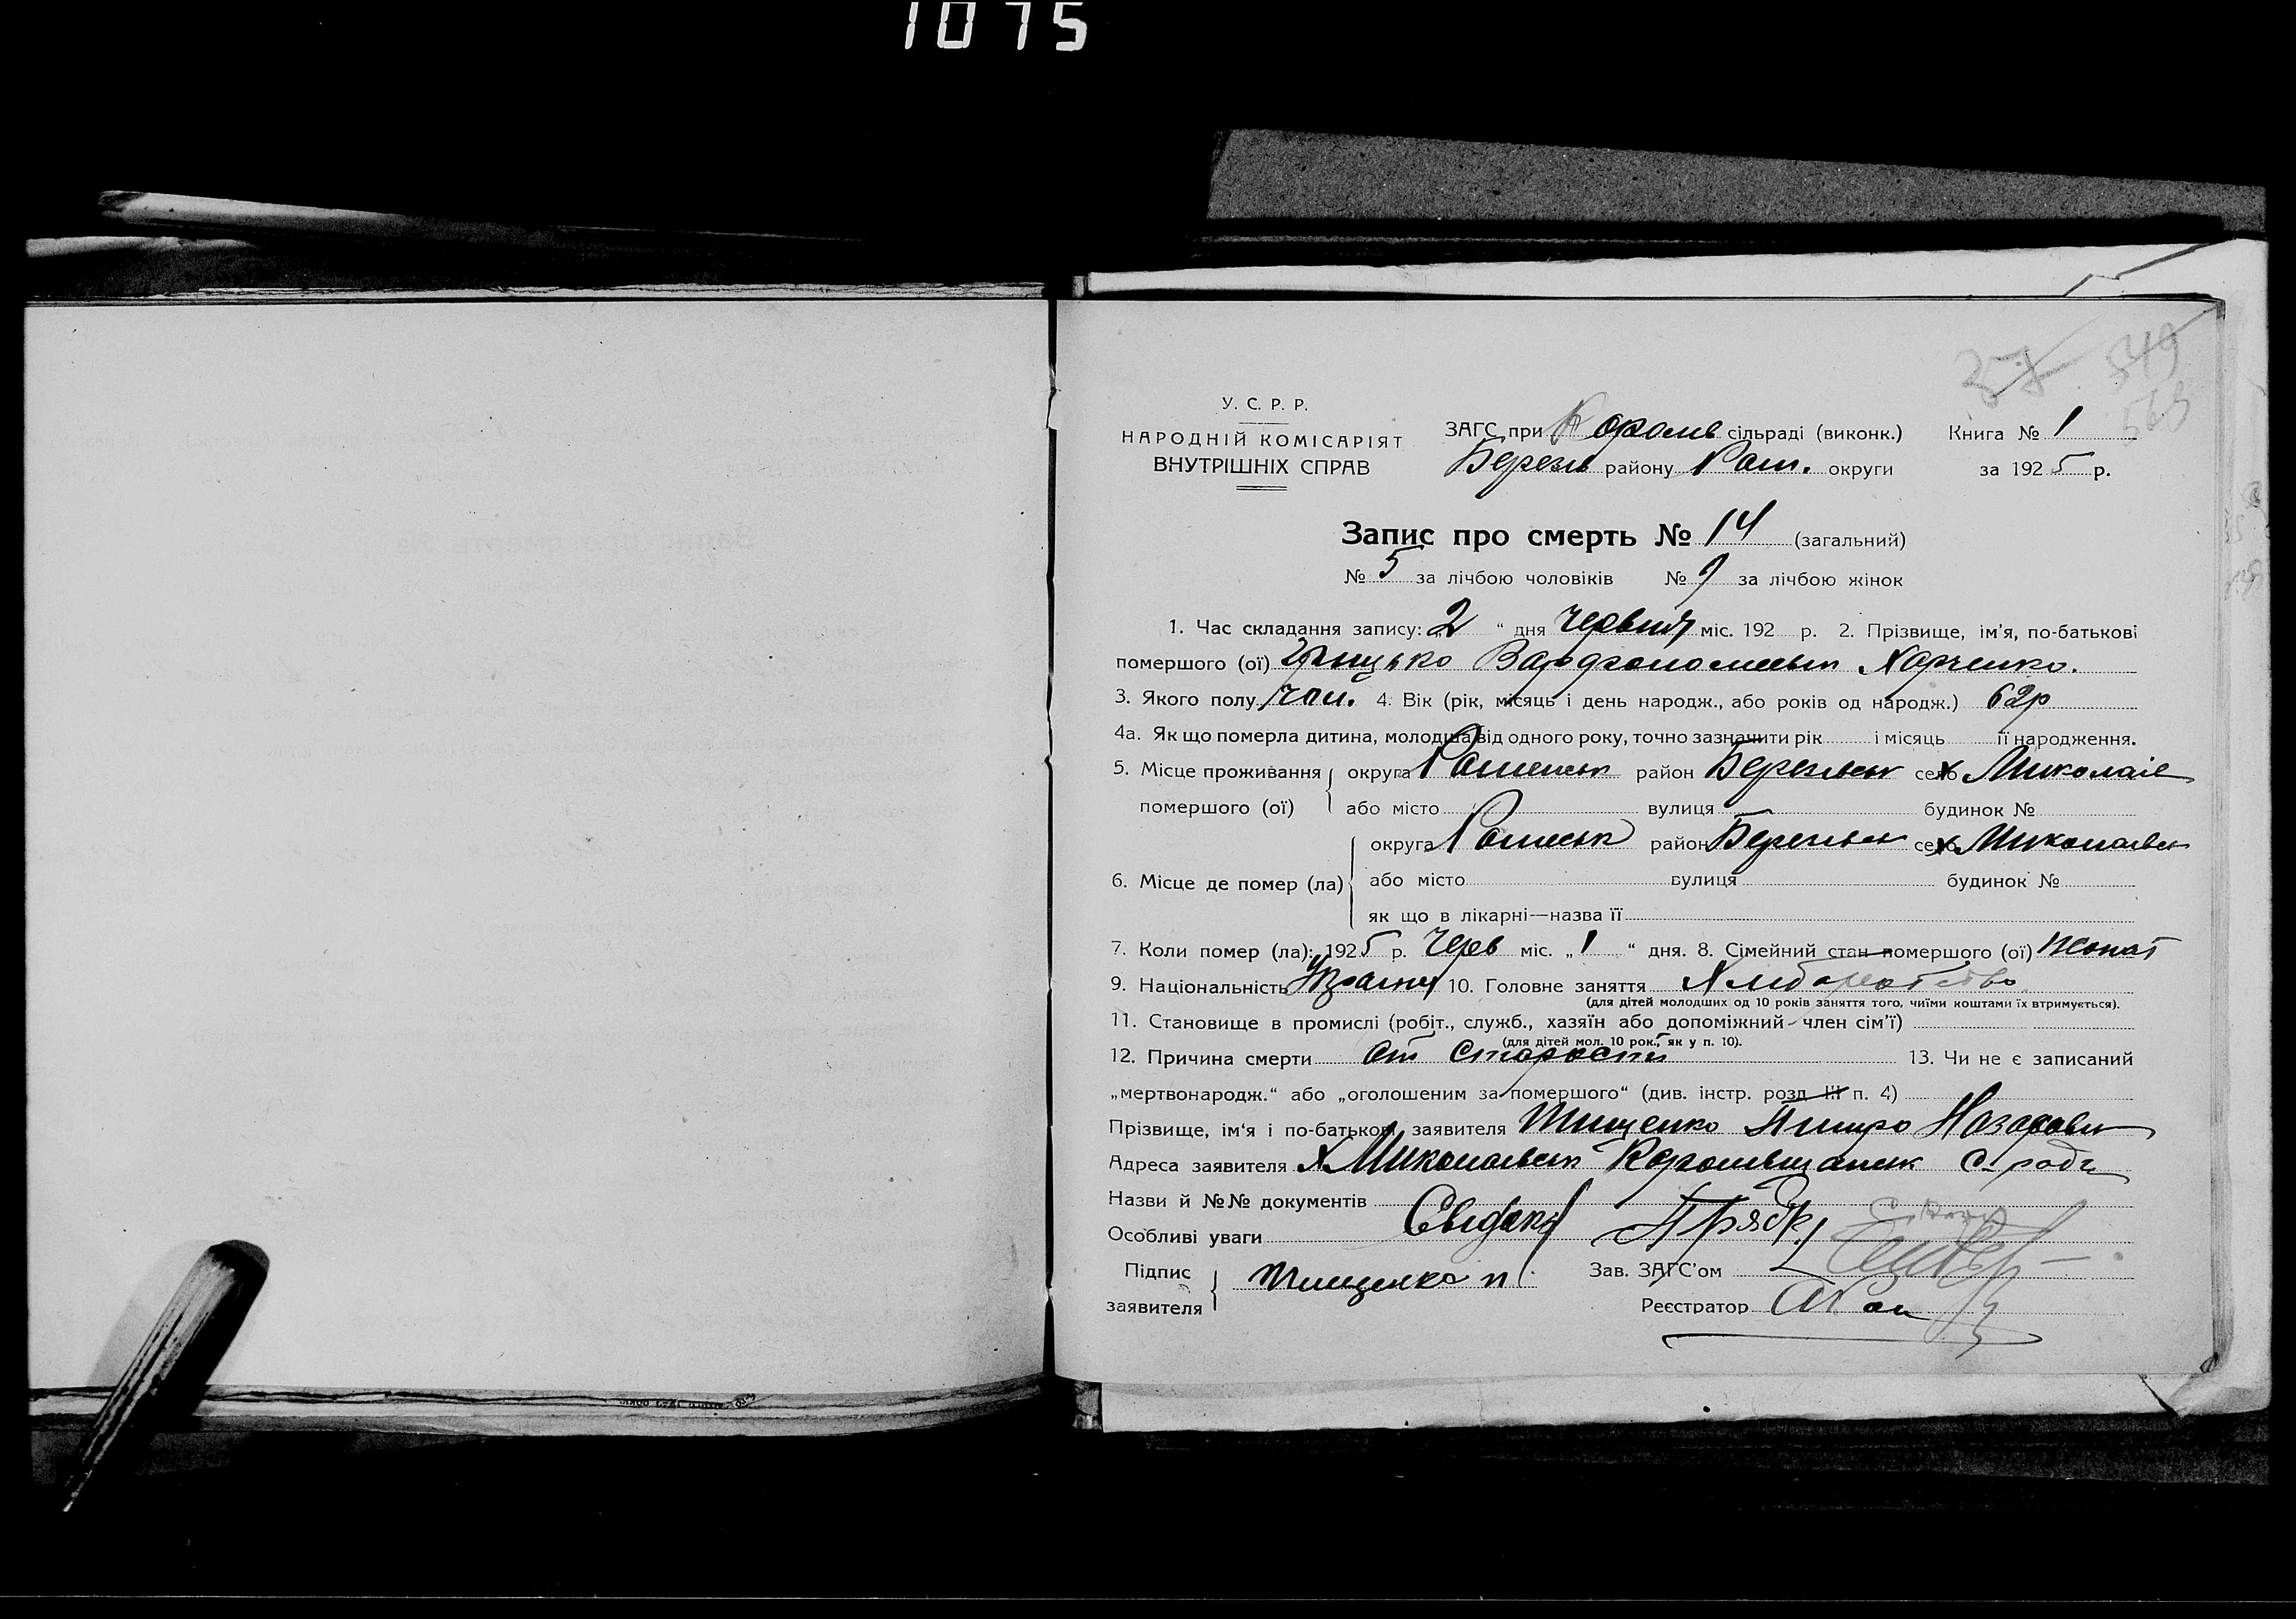 1075
37 549
563
У. С. Р. Р.
НАРОДНІЙ КОМІСАРІЯТ
ВНУТРІШНІХ СПРАВ
ЗАГС при сільраді (виконк.) Книга № 1
Березів району Ром. округи за 1925 р.
Запис про смерть № 14 (загальний)
№ 5 за лічбою чоловіків № 9 за лічбою жінок
1. Час складання запису: „2“ дня Червня міс. 192 р. 2. Прізвище, ім'я, по-батькові
помершого (ої) Грицько Харченко.
3. Якого полу чол. 4. Вік (рік, місяць і день народж., або років од народж.) 62р
4а. Як що померла дитина, молодша від одного року, точно зазначити рік і місяць її народження.
5. Місце проживання округа Роменськ район село х Миколаїв
помершого (ої) або місто вулиця будинок №
округа район село х Миколаевск
6. Місце де помер (ла) або місто вулиця будинок №
як що в лікарні—назва її
7. Коли помер (ла): 1925 р. Черв міс. „1“ дня. 8. Сімейний стан помершого (ої) жонат
9. Національність 10. Головне заняття
(для дітей молодших од 10 років заняття того, чиїми коштами їх втримується).
11. Становище в промислі (робіт., служб., хазяїн або допоміжний член сім'ї)
(для дітей мол. 10 рок., як у п. 10).
12. Причина смерти от старости 13. Чи не є записаний
„мертвонародж.“ або „оголошеним за помершого“ (див. інстр. розд. III п. 4)
Прізвище, ім'я і по-батькові заявителя Тищенко
Адреса заявителя х Миколаевск с-рада
Назви й №№ документів
Особливі уваги
Підпис Тищенко п Зав. ЗАГС'ом
заявителя Реєстратор